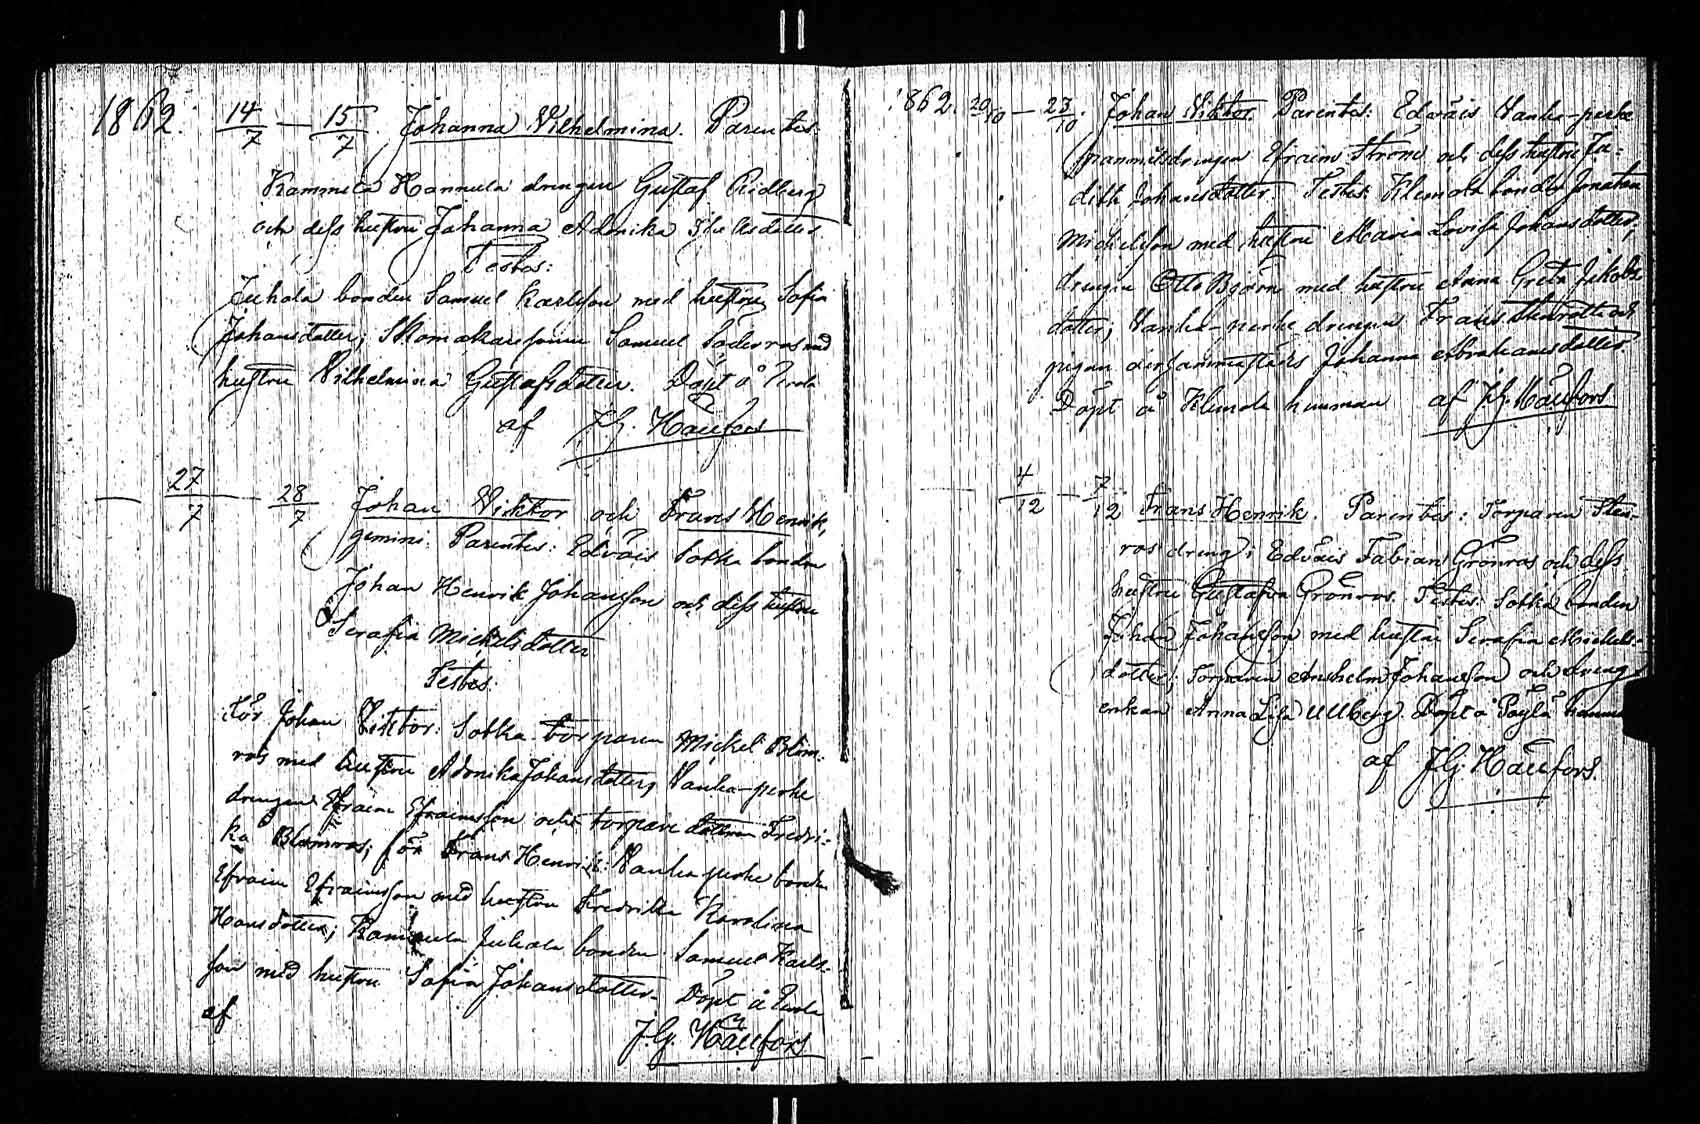 1862. 14/7 — 15/7. Johanna Vilhelmina. Parentes:
Kammela Hannula drengen Gustaf Ridberg
och dess hustru Johanna Adonika
Testes:
Juhala bonden Samuel Karlsson med hustru Sofia
Johansdotter; Skomakaren Samuel Söderros med
hustru Vilhelmina Gustafsdotter. Döpt å
af J.G. Haufors
— 27/7 — 28/7 Johan Viktor och Frans Henrik,
gemini. Parentes: Edväis Sotka bonden
Johan Henrik Johansson och dess hustru
Serafia Mickelsdotter
Testes:
För Johan Viktor: Sotka torparen Mickel Blom-
ros med hustru Adonika Johansdotter; Vanha-perhe
drengen Efraim Efraimsson och torpare dottren Fredri-
ka Blomros; för Frans Henrik: Vanha perhe bonden
Efraim Efraimsson med hustru Fredrika Karolina
Hansdotter; Kammela Juhala bonden Samuel Karls-
son med hustru Sofia Johansdotter. Döpt å
af
J.G. Haufors
1862. 20/10 — 23/10. Johan Viktor. Parentes: Edväis Vanha-perhe
spanmålsdrengen Efraim Ström och dess hustru Ju-
dith Johansdotter. Testes: Klemola bonden Jonatan
Michelsson med hustru Maria Lovisa Johansdotter;
drengen Otto Björn med hustru Anna Greta Jakobs
dotter; Vanha-perhe drengen Frans Stenroth och
pigan dersammastädes Johanna Abrahamsdotter.
Döpt å Klemola hemman af J.G. Haufors
— 4/12 — 7/12. Frans Henrik. Parentes: Torparen Sten-
ros dreng i Edväis Fabian Grönros och dess
hustru Gustafva Grönros. Testes: Sotka bonden
Johan Johansson med hustru Serafia Mickels-
dotter; Torparen Anshelm Johansson och drengs
enkan Anna Lisa Ullberg. Döpt å
af J.G. Haufors.